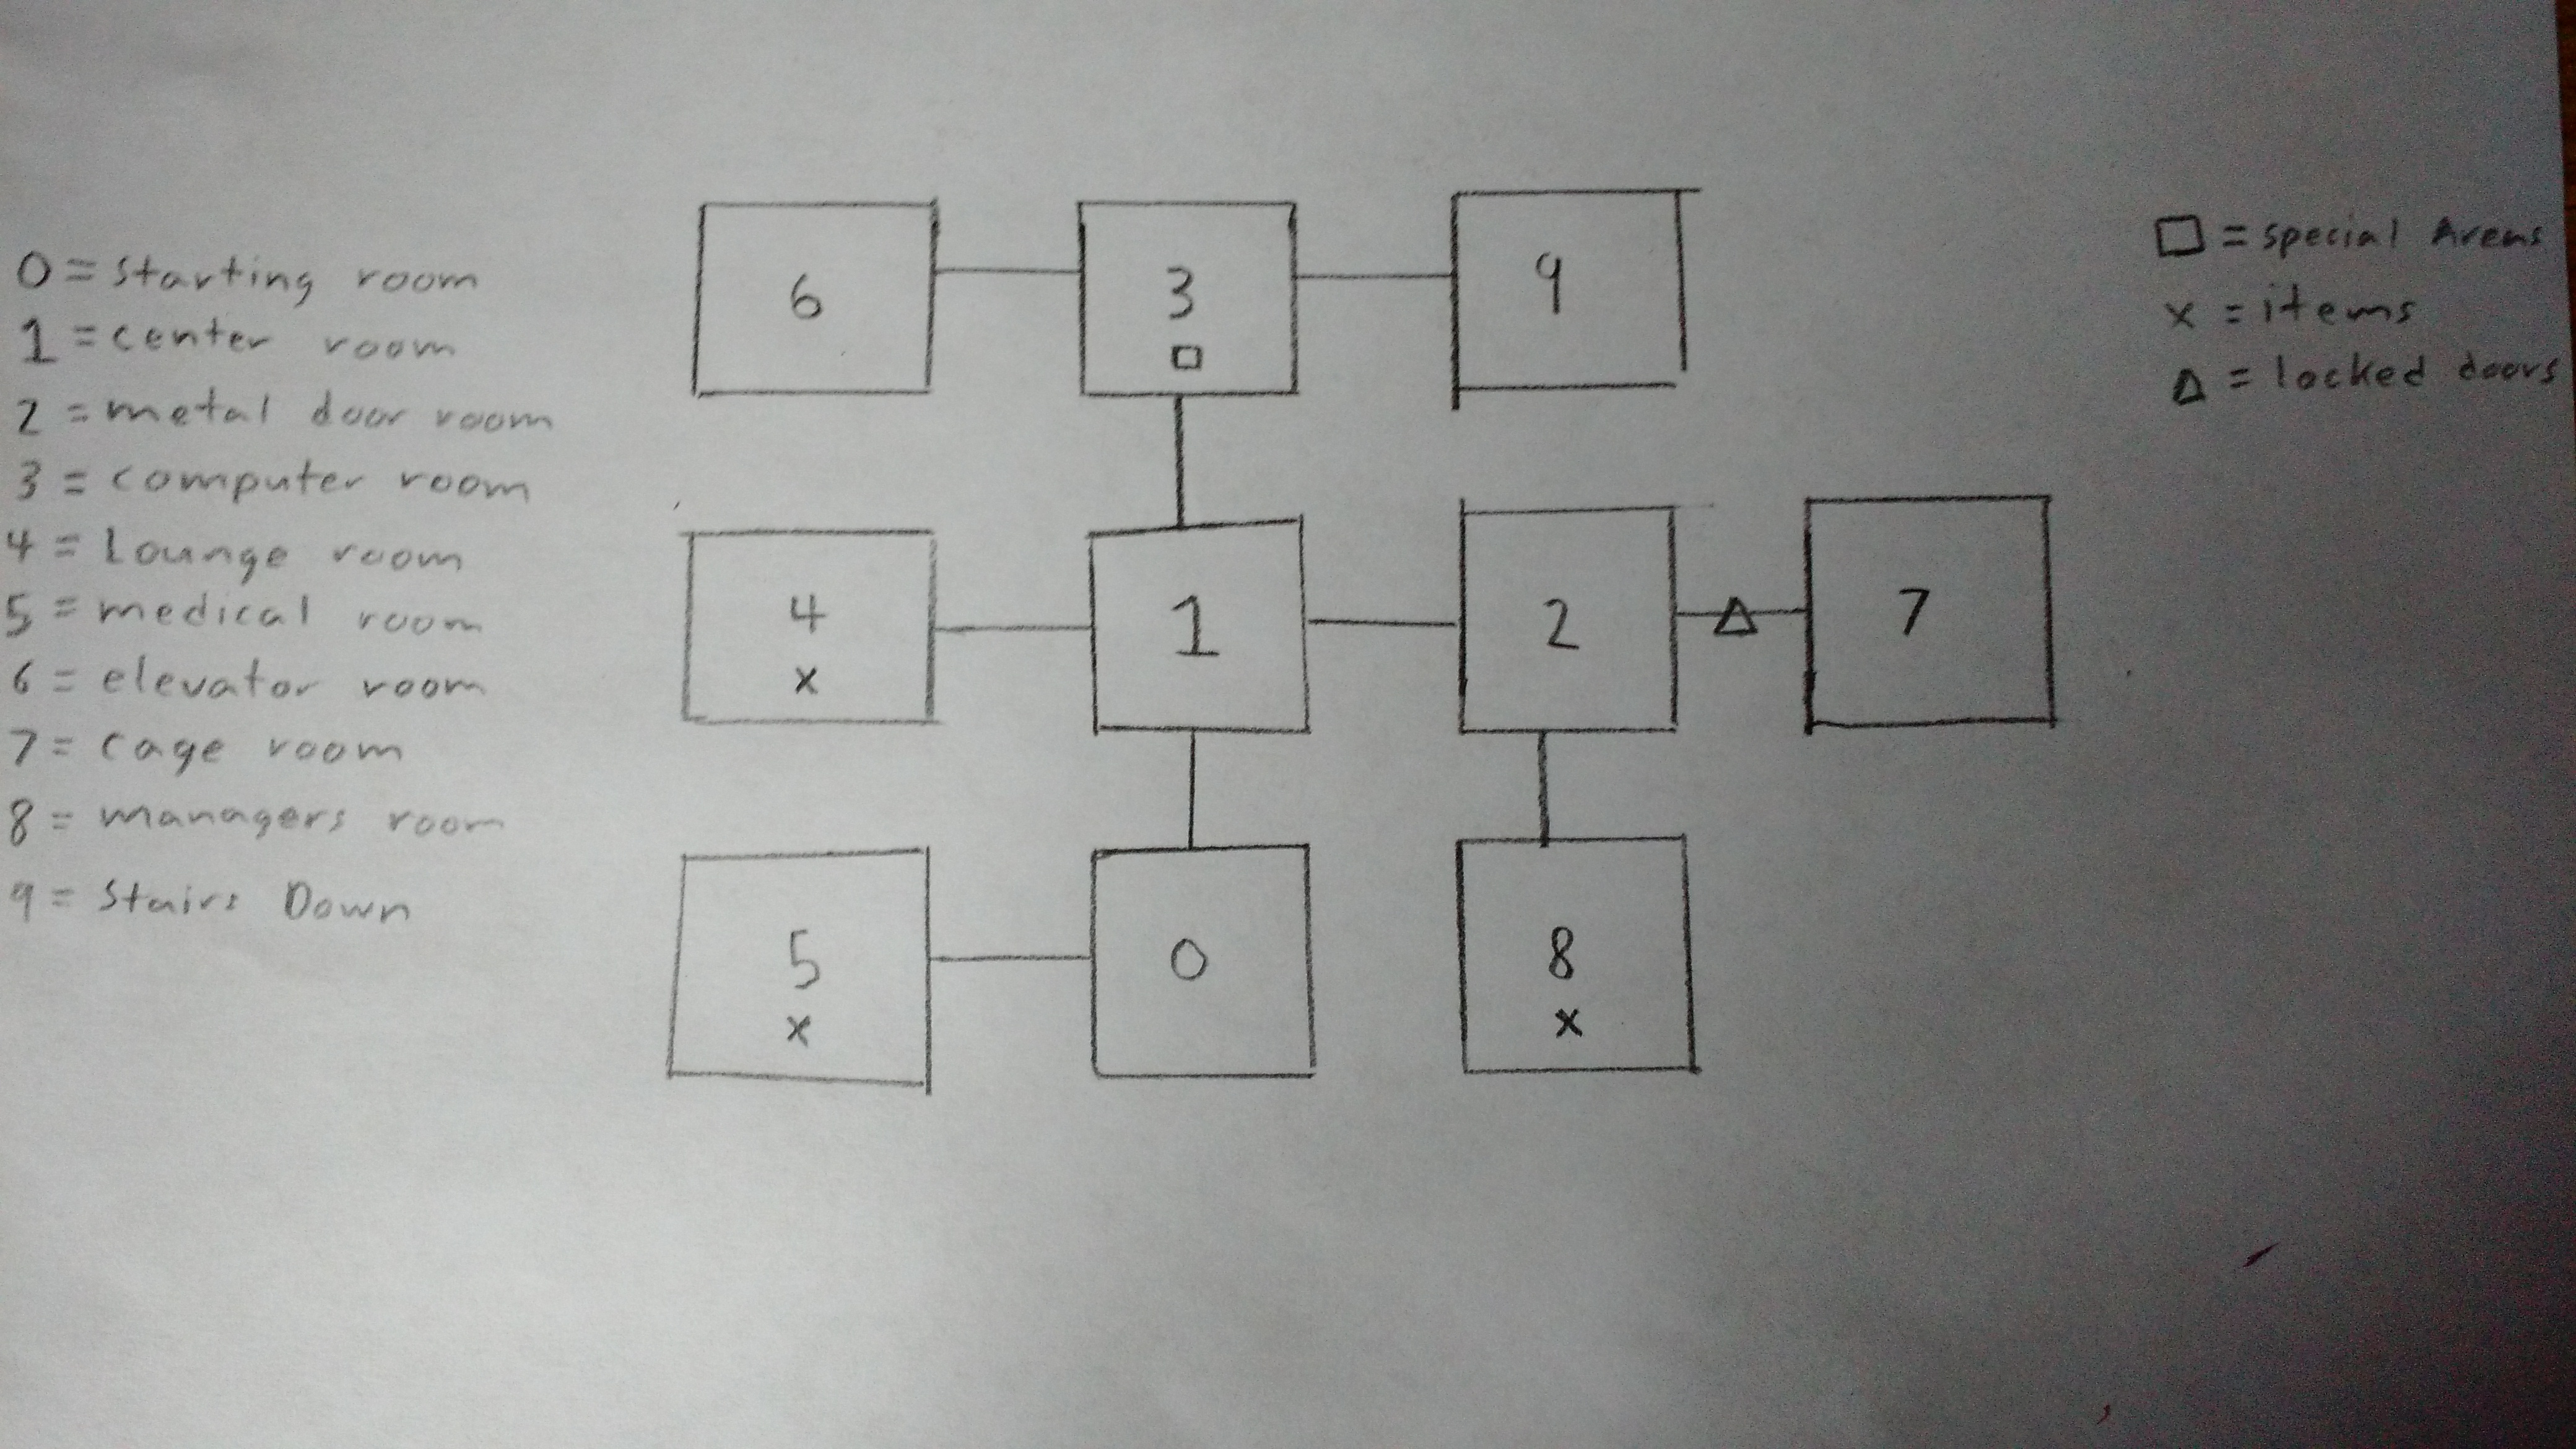 0 = starting room
1 = center room
2 = metal door room
3 = computer room
4 = Lounge room
5 = medical room
6 = elevator room
7 = cage room
8 = managers room
9 = Stairs Down
6
3
□
9
4
x
1
2
Δ
7
5
x
0
8
x
□ = special Areas
x = items
Δ = locked doors